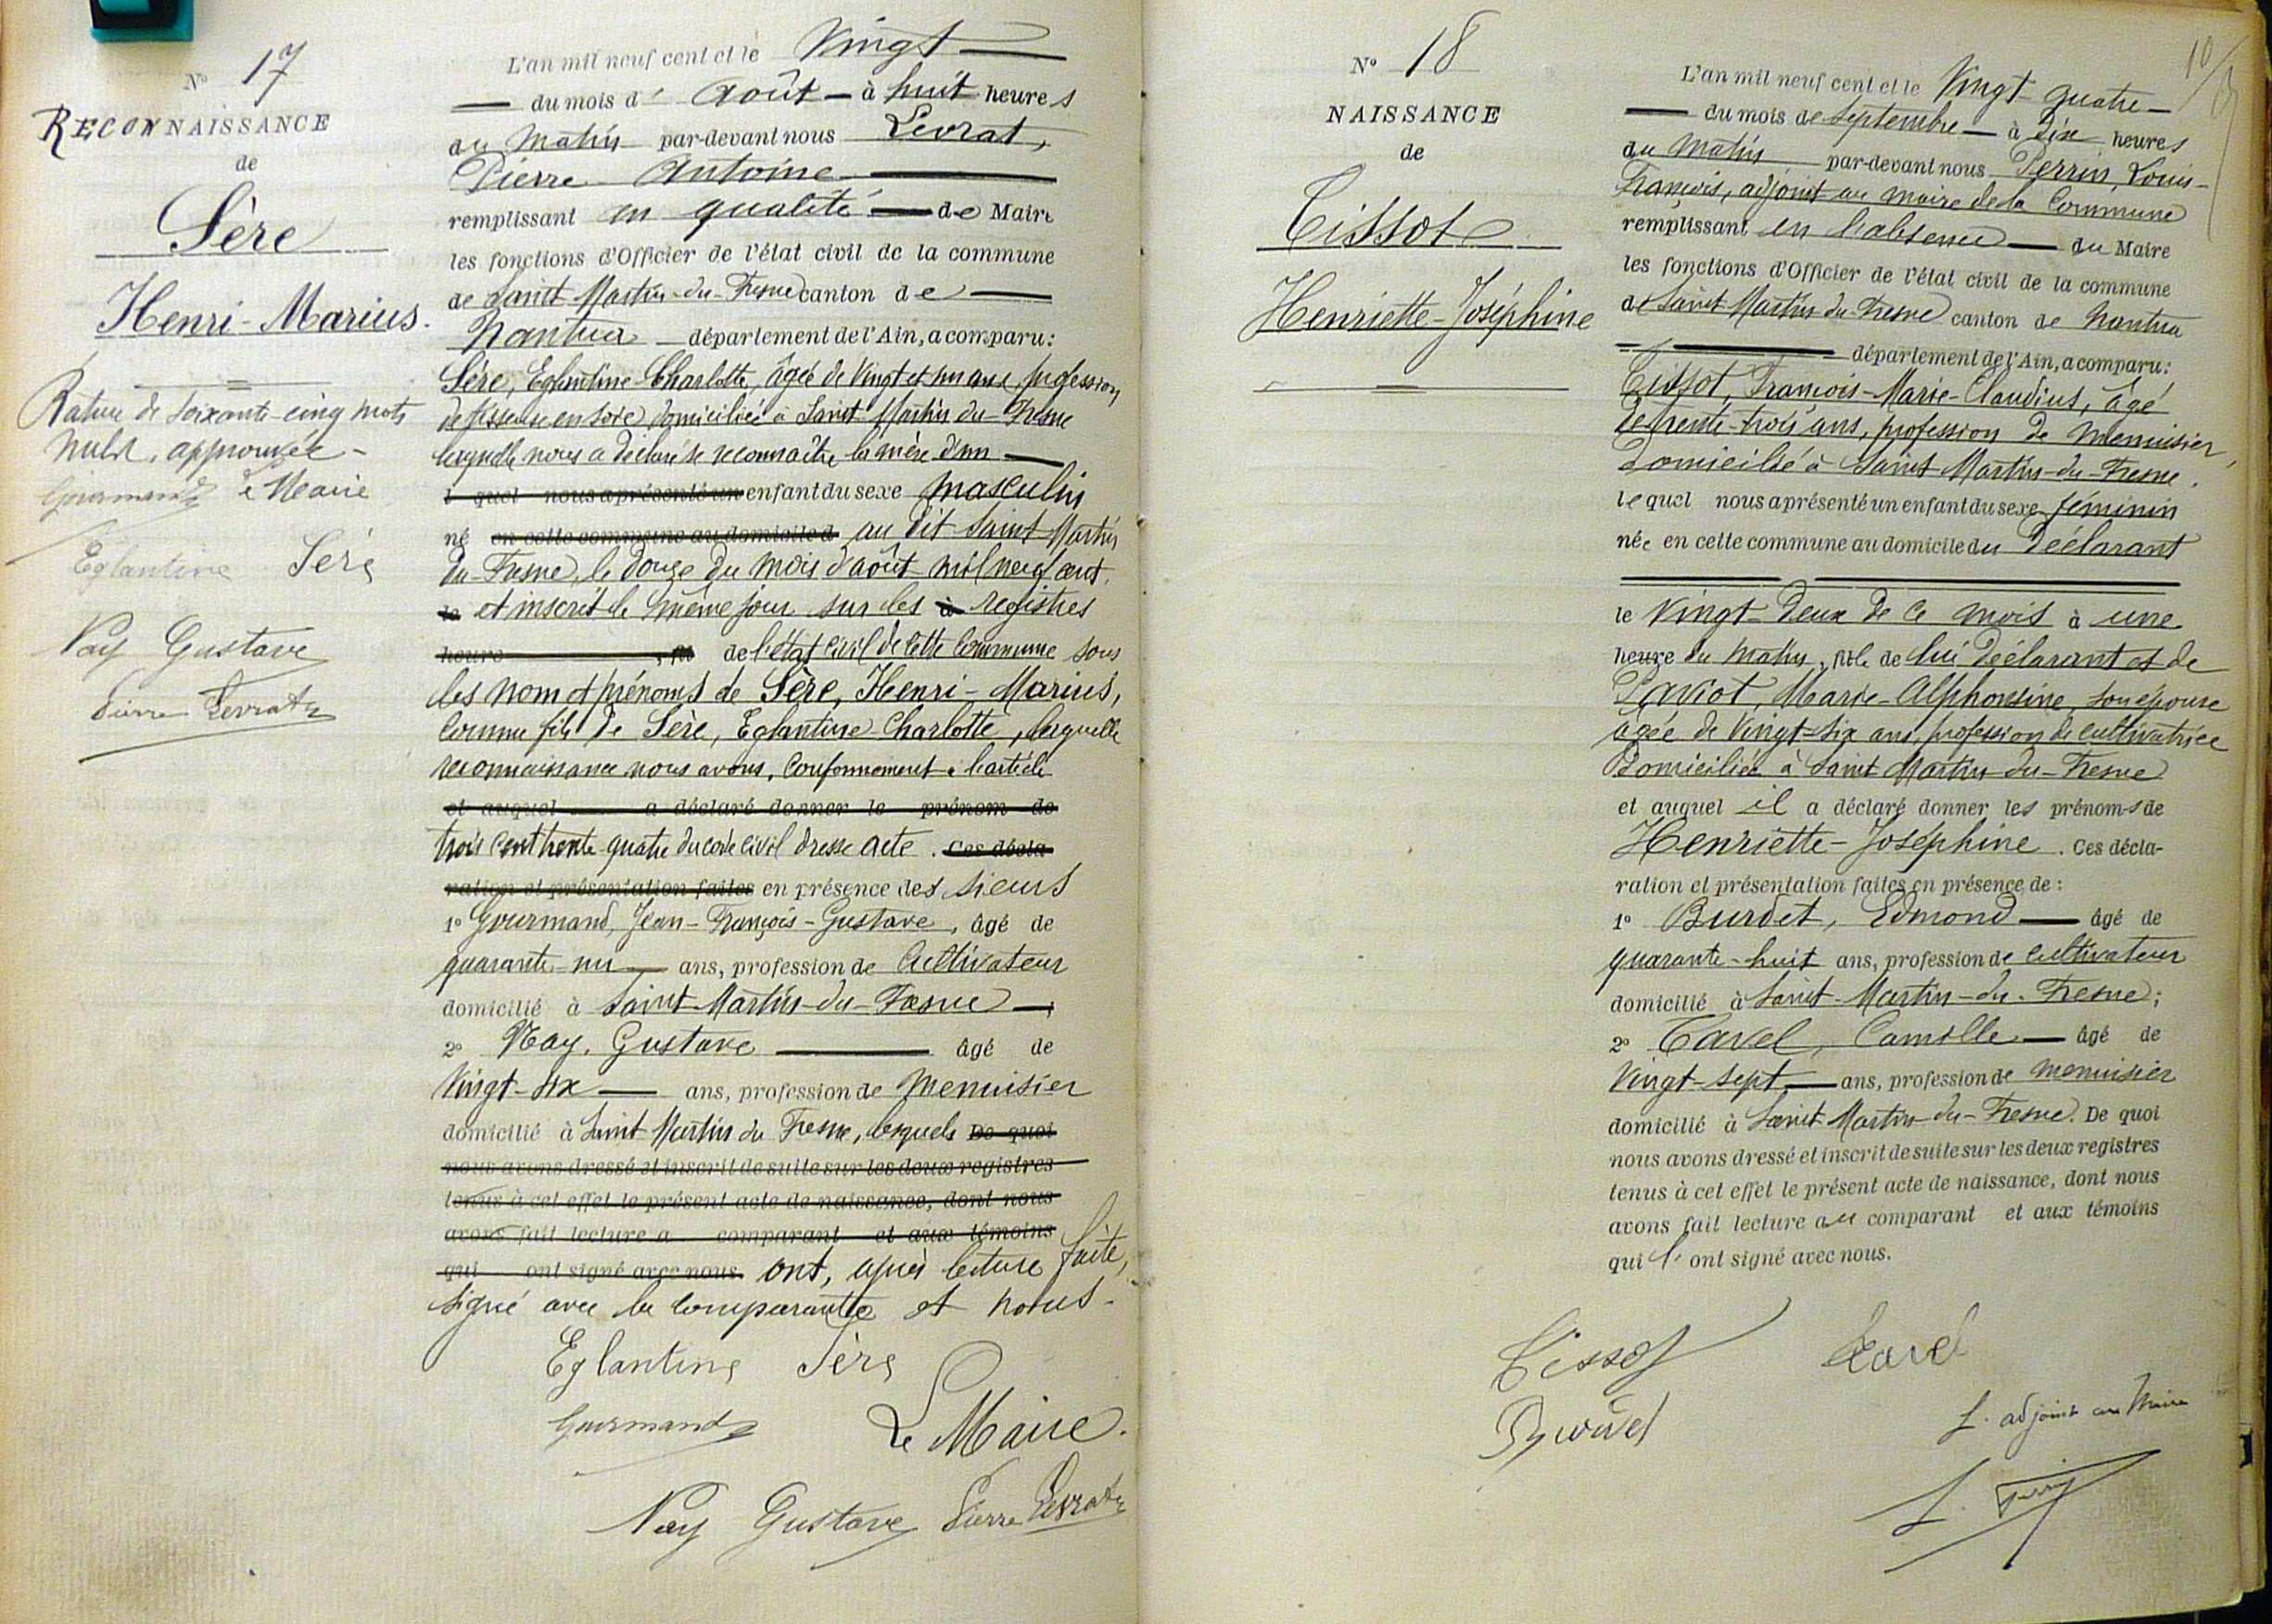 N° 17
RECONNAISSANCE
de
Sère
Henri-Marius.
Rature de soixante-cinq mots
nuls, approuvée -
Gourmand Le Maire
Eglantine Sère
Nay Gustave
Pierre Levrat
L'an mil neuf cent et le Vingt
du mois d' Août à huit heures
du Matin par-devant nous Levrat,
Pierre Antoine
remplissant en qualité de Maire
les fonctions d'Officier de l'état civil de la commune
de Saint-Martin-du-Fresne canton de
Nantua département de l'Ain, a comparu:
Sère, Eglantine-Charlotte, âgée de Vingt et un ans, profession
de tisseuse en soie domiciliée à Saint-Martin du-Fresne
laquelle nous a déclaré se reconnaître la mère d'un
l quel nous a présenté un enfant du sexe masculin
né en cette commune au domicile d au dit Saint Martin
du-Fresne, le douze du mois d'août mil neuf cent,
le et inscrit le même jour sur les à registres
heure , fil de l'état civil de cette commune sous
les nom et prénoms de Sère, Henri-Marius,
comme fils de Sère, Eglantine Charlotte, laquelle
reconnaissance nous avons, conformément à l'article
et auquel a déclaré donner le prénom de
trois cent trente quatre du code civil dressé acte. Ces décla-
ration et présentation faites en présence des sieurs
1° Gourmand, Jean-François-Gustave, âgé de
quarante-un ans, profession de Cultivateur
domicilié à Saint-Martin-du-Fresne ;
2° Nay, Gustave âgé de
Vingt-six ans, profession de Menuisier
domicilié à Saint-Martin du Fresne, lesquels De quoi
nous avons dressé et inscrit de suite sur les deux registres
tenus à cet effet le présent acte de naissance, dont nous
avons fait lecture a comparant et aux témoins
qui ont signé avec nous. ont, après lecture faite,
signé avec la comparante et nous.
Eglantine Sère
Gourmand Le Maire.
Nay Gustave Pierre Levrat
10
N° 18
NAISSANCE
de
Tissot
Henriette-Joséphine
L'an mil neuf cent et le Vingt-quatre
du mois de Septembre à Dix heures
du Matin par-devant nous Perrin, Louis-
François, adjoint au maire de la Commune
remplissant en l'absence du Maire
les fonctions d'Officier de l'état civil de la commune
de Saint Martin-du-Fresne canton de Nantua
département de l'Ain, a comparu:
Tissot, François-Marie-Claudius, âgé
de trente-trois ans, profession de Menuisier,
domicilié à Saint Martin-du-Fresne.
lequel nous a présenté un enfant du sexe féminin
née en cette commune au domicile du Déclarant
le Vingt-deux de ce mois à une
heure du matin, fille de lui Déclarant et de
Paviot, Marie-Alphonsine, son épouse
âgée de Vingt-six ans, profession de cultivatrice
Domiciliée à Saint Martin-du-Fresne
et auquel il a déclaré donner les prénoms de
Henriette-Joséphine. Ces décla-
ration et présentation faites en présence de :
1° Burdet, Edmond âgé de
quarante-huit ans, profession de cultivateur
domicilié à Saint-Martin-du-Fresne;
2° Tavel, Camille âgé de
Vingt-sept ans, profession de menuisier
domicilié à Saint Martin-du-Fresne. De quoi
nous avons dressé et inscrit de suite sur les deux registres
tenus à cet effet le présent acte de naissance, dont nous
avons fait lecture au comparant et aux témoins
qui l' ont signé avec nous.
Tissot Tavel
L'adjoint au Maire